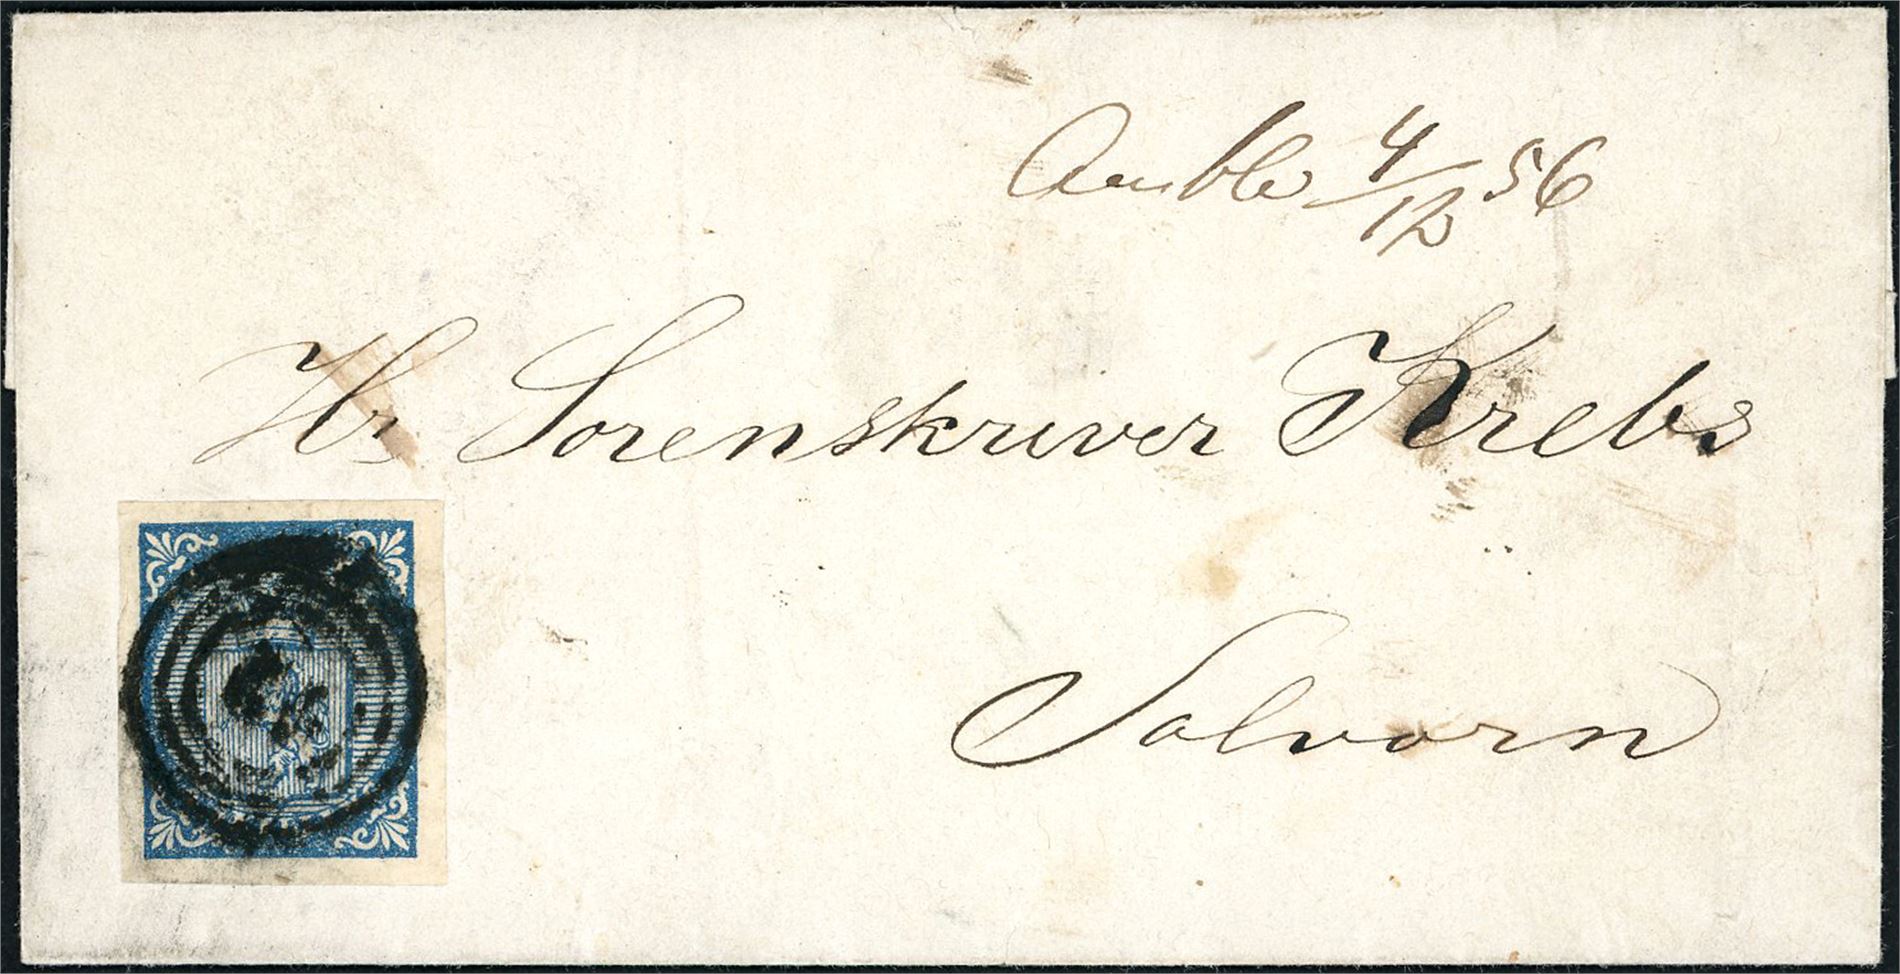 Amble 4/12 56
Hr Sorenskriver Krebs
Solvorn